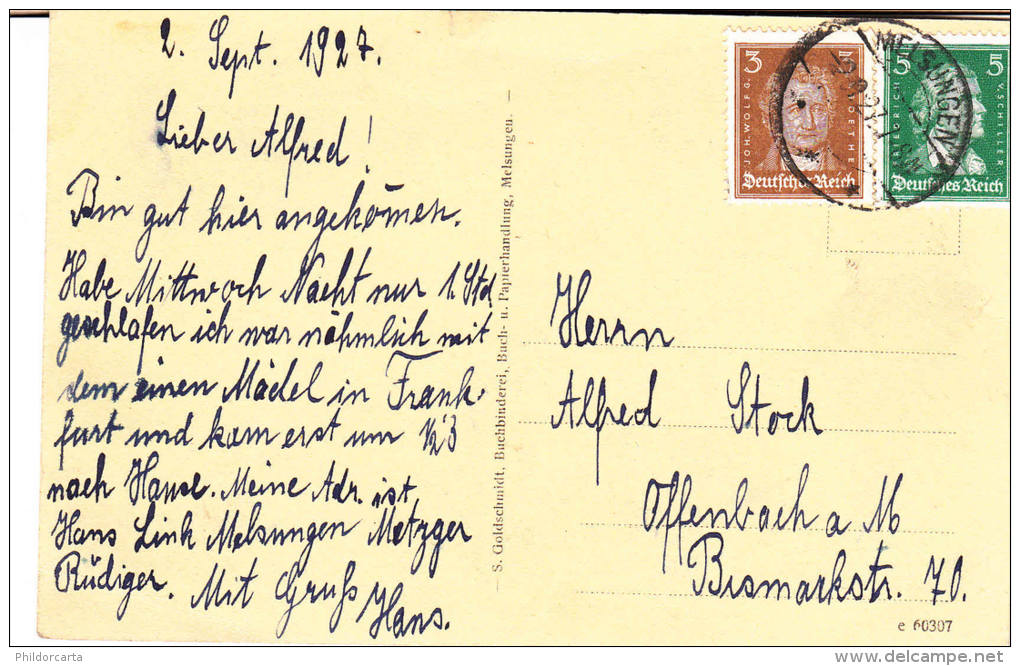 2. Sept. 1927.
Lieber Alfred!
Bin gut hier angekomen.
Habe Mittwoch Nacht nur 1. Std
geschlafen ich war nähmlich mit
dem einen Mädel in Frank-
furt und kam erst um 1/2 3
nach Hause. Meine Adr. ist
Hans Link Melsungen Metzger
Rüdiger. Mit Gruß
Hans.
S. Goldschmidt, Buchbinderei, Buch- u. Papierhandlung, Melsungen.
3
JOH. WOLFG. GOETHE
Deutsches Reich
5 5
FRIEDRICH V. SCHILLER
Deutsches Reich
MELSUNGEN
Herrn
Alfred Stock
Offenbach a M
Bismarkstr. 70.
e 60307
Phildorcarta
delcampe.net